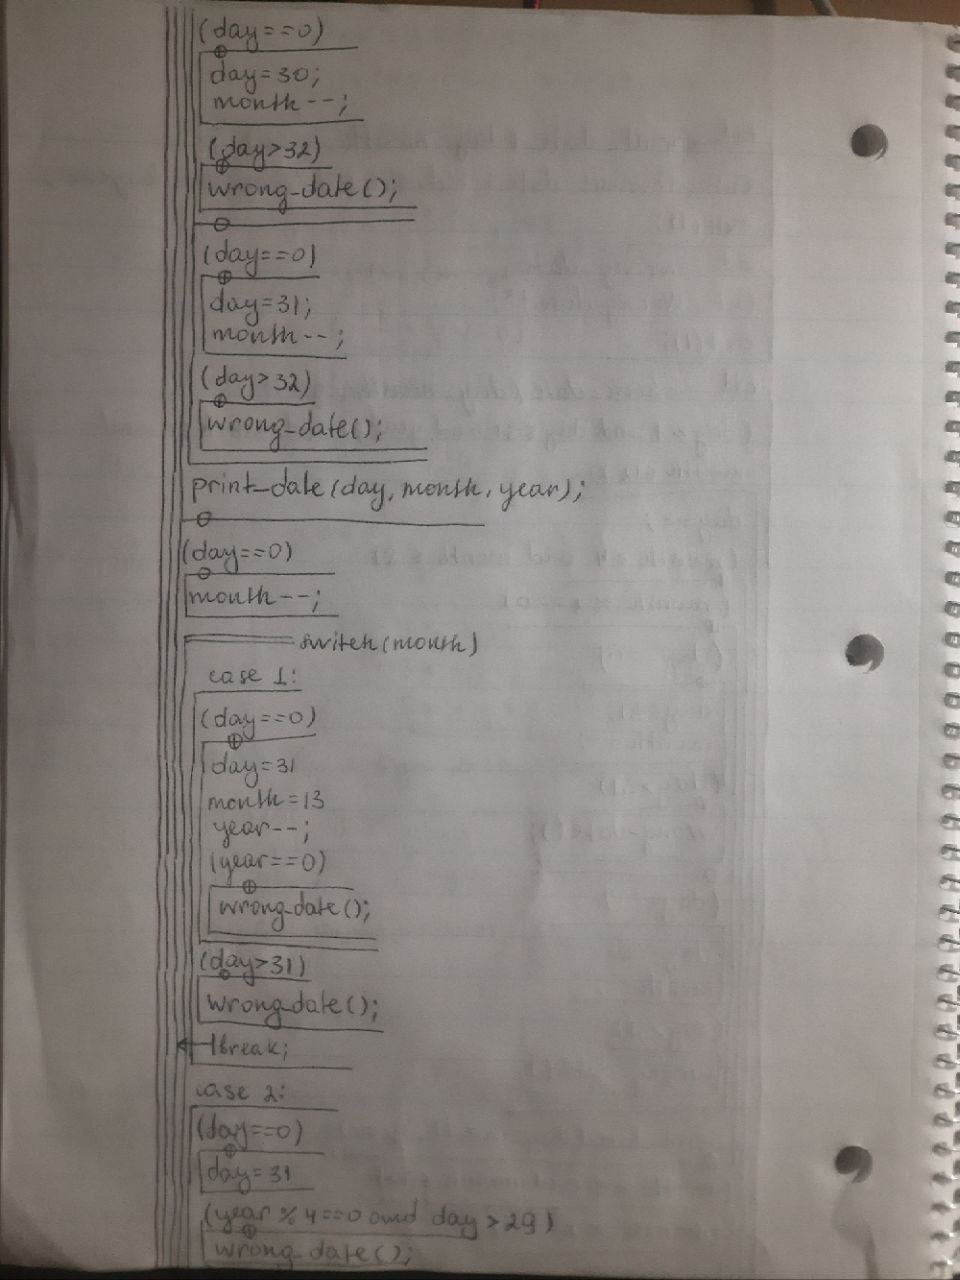 (day==0)
day=30;
month--;
(day>32)
wrong_date();
(day==0)
day=31;
month--;
(day>32)
wrong_date();
print_date(day, month, year);
(day==0)
month--;
switch(month)
case 1:
(day==0)
day=31
month=13
year--;
(year==0)
wrong_date();
(day>31)
wrong_date();
break;
case 2:
(day==0)
day=31
(year % 4==0 and day >29)
wrong_date();